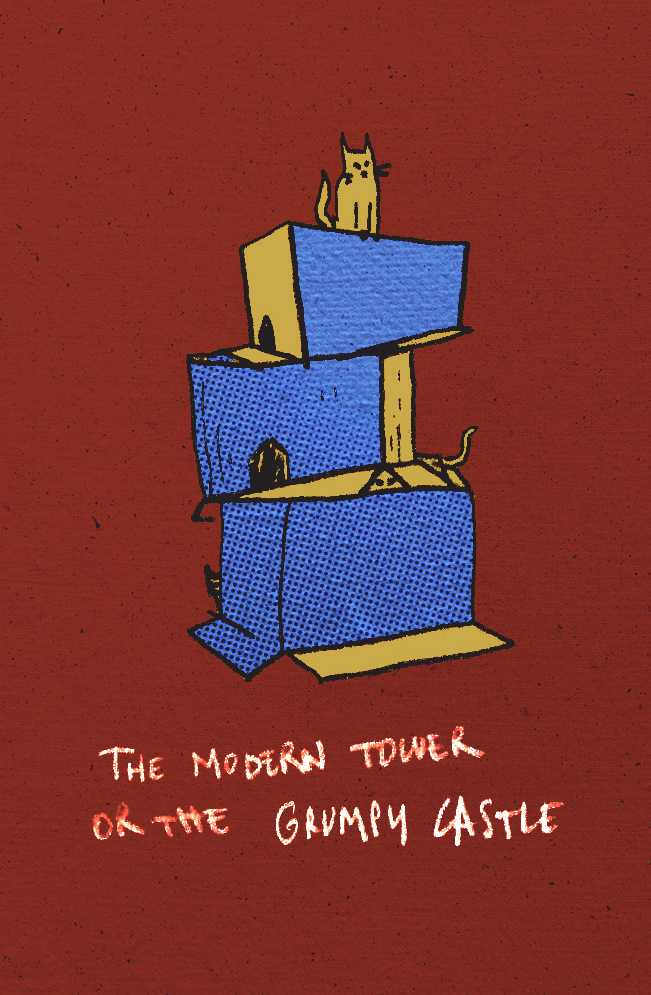 THE MODERN TOWER
OR THE GRUMPY CASTLE